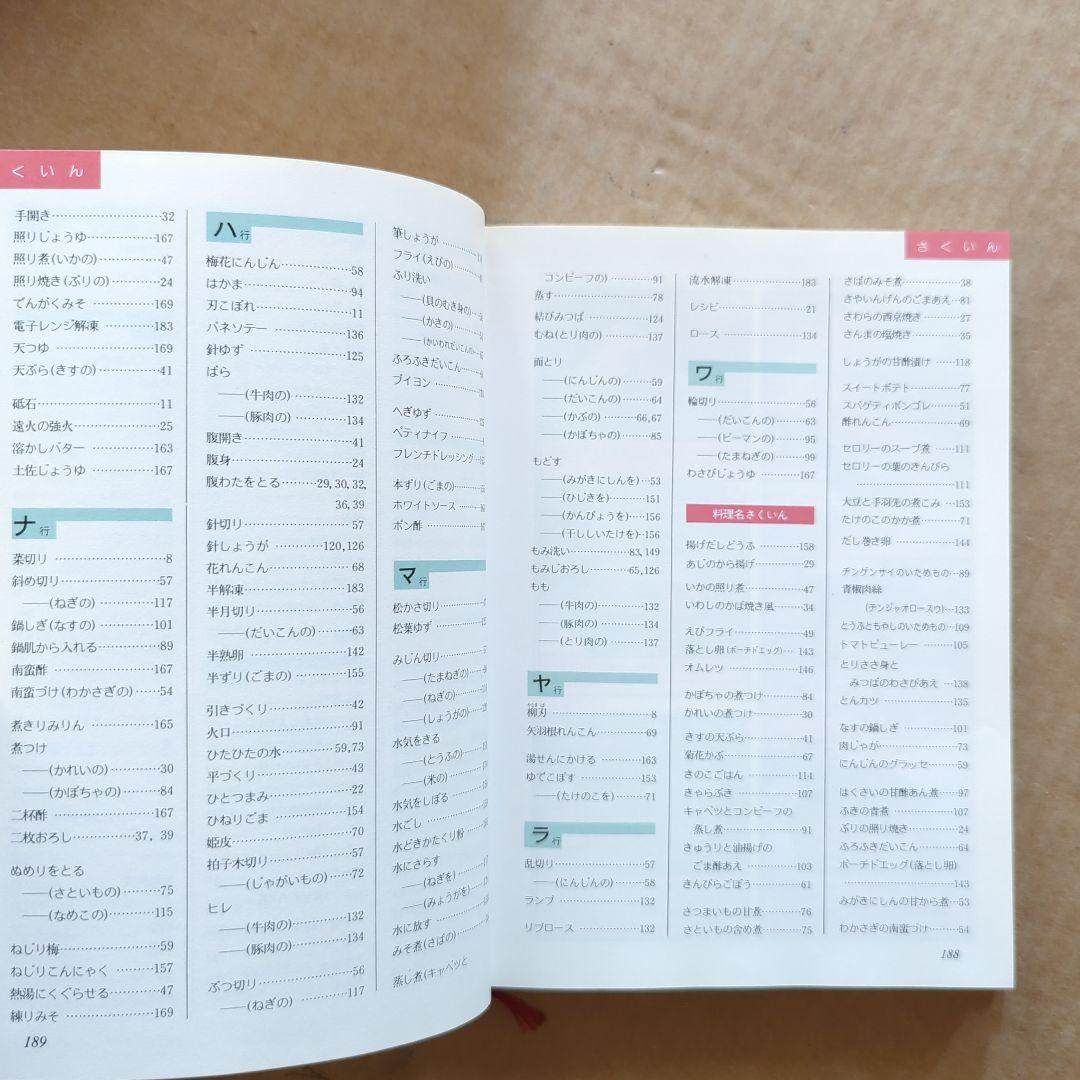 くいん
手開き……32
照りじょうゆ……167
照り煮(いかの)……47
照り焼き(ぶりの)……24
でんがくみそ……169
電子レンジ解凍……183
天つゆ……169
天ぷら(きすの)……41
砥石……11
遠火の強火……25
溶かしバター……163
土佐じょうゆ……167
ナ行
菜切り……8
斜め切り……57
——(ねぎの)……117
鍋しぎ(なすの)……101
鍋肌から入れる……89
南蛮酢……167
南蛮づけ(わかさぎの)……54
煮きりみりん……165
煮つけ
——(かれいの)……30
——(かぼちゃの)……84
二杯酢……167
二枚おろし……37, 39
ぬめりをとる
——(さといもの)……75
——(なめこの)……115
ねじり梅……59
ねじりこんにゃく……157
熱湯にくぐらせる……47
練りみそ……169
189
ハ行
梅花にんじん……58
はかま……94
刃こぼれ……11
バネソテー……136
針ゆず……125
ばら
——(牛肉の)……132
——(豚肉の)……134
腹開き……41
腹身……24
腹わたをとる……29,30,32,
36,39
針切り……57
針しょうが……120,126
花れんこん……68
半解凍……183
半月切り……56
——(だいこんの)……63
半熟卵……142
半ずり(ごまの)……155
引きづくり……42
火口……91
ひたひたの水……59,73
平づくり……43
ひとつまみ……22
ひねりごま……154
姫皮……70
拍子木切り……57
——(じゃがいもの)……72
ヒレ
——(牛肉の)……132
——(豚肉の)……134
ぶつ切り……56
——(ねぎの)……117
筆しょうが……
フライ(えびの)……
ふり洗い
——(貝のむき身の)……
——(かきの)……
——(かいわれだいこんの)……
ふろふきだいこん……
ブイヨン……
へぎゆず……
ペティナイフ……
フレンチドレッシング……
本ずり(ごまの)……
ホワイトソース……
ポン酢……
マ行
松かさ切り……
松葉ゆず……
みじん切り……
——(たまねぎの)……
——(ねぎの)……
——(しょうがの)……
水気をきる
——(とうふの)……
——(米の)……
水気をしぼる……
水ごし……
水どきかたくり粉……
水にさらす
——(ねぎを)……
——(みょうがを)……
水に放す……
みそ煮(さばの)……
蒸し煮(キャベツと
さくいん
コンビーフの)……91
蒸す……78
結びみつば……124
むね(とり肉の)……137
面とり
——(にんじんの)……59
——(だいこんの)……64
——(かぶの)……66,67
——(かぼちゃの)……85
もどす
——(みがきにしんを)……53
——(ひじきを)……151
——(かんぴょうを)……156
——(干ししいたけを)……156
もみ洗い……83,149
もみじおろし……65,126
もも
——(牛肉の)……132
——(豚肉の)……134
——(とり肉の)……137
ヤ行
柳刃……8
矢羽根れんこん……69
湯せんにかける……163
ゆでこぼす……153
——(たけのこを)……71
ラ行
乱切り……57
——(にんじんの)……58
ランプ……132
リブロース……132
流水解凍……183
レシピ……21
ロース……134
ワ行
輪切り……56
——(だいこんの)……63
——(ピーマンの)……95
——(たまねぎの)……99
わさびじょうゆ……167
料理名さくいん
揚げだしどうふ……158
あじのから揚げ……29
いかの照り煮……47
いわしのかば焼き風……34
えびフライ……49
落とし卵(ポーチドエッグ)……143
オムレツ……146
かぼちゃの煮つけ……84
かれいの煮つけ……30
きすの天ぷら……41
菊花かぶ……67
きのこごはん……114
きゃらぶき……107
キャベツとコンビーフの
蒸し煮……91
きゅうりと油揚げの
ごま酢あえ……103
きんぴらごぼう……61
さつまいもの甘煮……76
さといもの含め煮……75
さばのみそ煮……38
さやいんげんのごまあえ……81
さわらの西京焼き……27
さんまの塩焼き……35
しょうがの甘酢漬け……118
スイートポテト……77
スパゲティボンゴレ……51
酢れんこん……69
セロリーのスープ煮……111
セロリーの葉のきんぴら
……111
大豆と手羽先の煮こみ……153
たけのこのかか煮……71
だし巻き卵……144
チンゲンサイのいためもの……89
青椒肉絲
(チンジャオロースウ)……133
とうふともやしのいためもの……109
トマトピューレー……105
とりささ身と
みつばのわさびあえ……138
とんカツ……135
なすの鍋しぎ……101
肉じゃが……73
にんじんのグラッセ……59
はくさいの甘酢あん煮……97
ふきの青煮……107
ぶりの照り焼き……24
ふろふきだいこん……64
ポーチドエッグ(落とし卵)
……143
みがきにしんの甘から煮……53
わかさぎの南蛮づけ……54
188